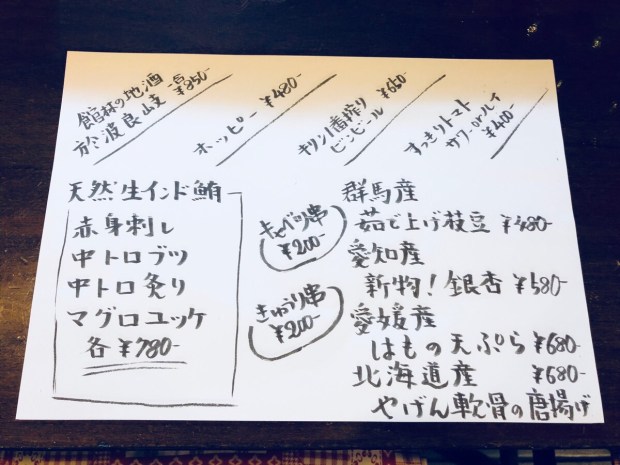 館林の地酒
於波良岐 一合 ¥850-
ホッピー ¥480-
キリン一番搾り ¥650-
ビンビール
すっきりトマト
サワーorハイ
¥400-
天然生インド鮪
赤身刺し
中トロブツ
中トロ炙り
マグロユッケ
各¥780-
キャベツ串
¥200-
きゅうり串
¥200-
群馬産
茹で上げ枝豆 ¥480-
愛知産
新物!銀杏 ¥580-
愛媛産
はもの天ぷら ¥680-
北海道産 ¥680-
やげん軟骨の唐揚げ